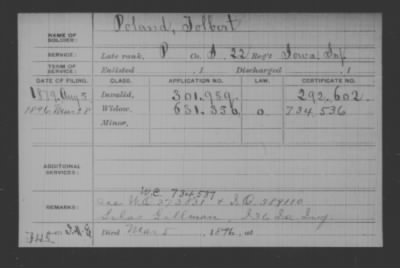 NAME OF SOLDIER: Poland, Tolbert
SERVICE: Late rank, P Co. , 22 Reg't Iowa Inf
TERM OF SERVICE: Enlisted , 1 Discharged , 1
DATE OF FILING. CLASS. APPLICATION NO. LAW. CERTIFICATE NO.
1879 Aug 5 Invalid, 301.989. 292.602.
1896 Mar 28 Widow, 631.356 O. 734.536
Minor,
ADDITIONAL SERVICES:
W.C. 734.537
REMARKS: See W.C. 373831 + I.O. 389110
Silas Gillman, I 36 Ia Inf.
Died Mar 5 , 1896, at